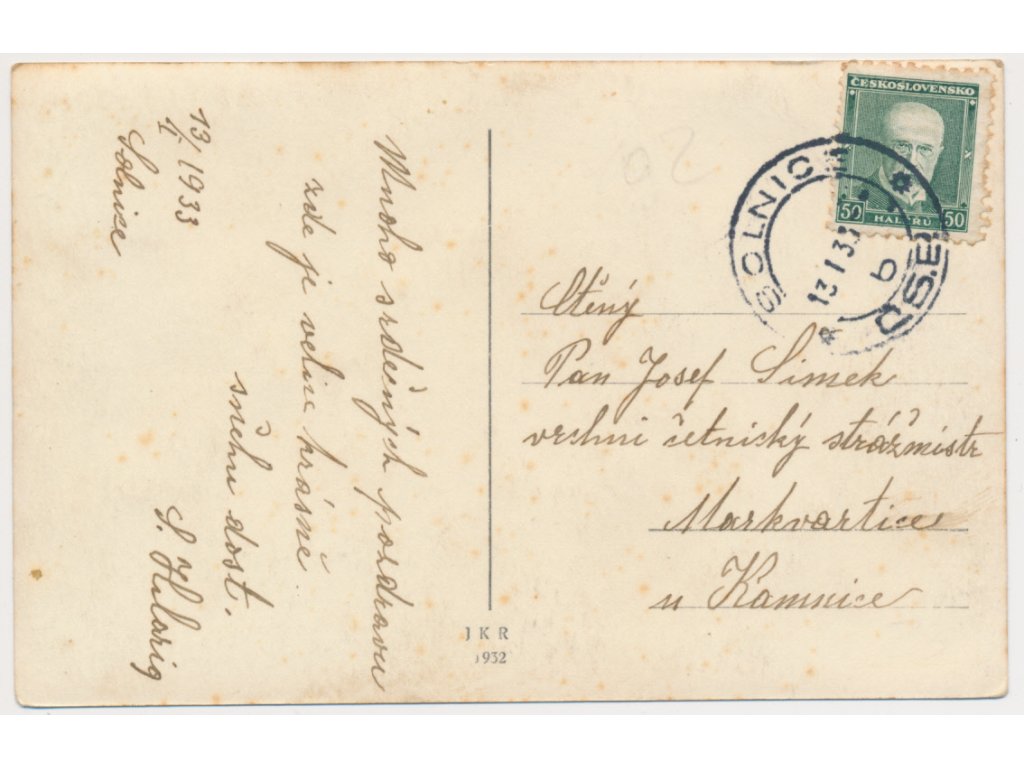 13/I 1933
Solnice
Mnoho srdečných pozdravů
zde je velice krásně.
sněhu dost.
S. Hilarig
JKR
1932
ČESKOSLOVENSKO
50 HALÉŘŮ 50
SOLNICE
13 I 33
b
ČS.E
50
Ctěný
Pan Josef Šimek
vrchni četnický strážmistr
Markvartice
u Kamnice